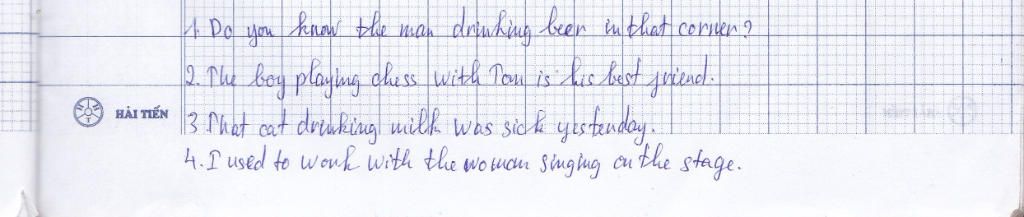 1. Do you know the man drinking beer in that corner?
2. The boy playing chess with Tom is his best friend.
HẢI TIẾN
3. That cat drinking milk was sick yesterday.
4. I used to work with the woman singing on the stage.